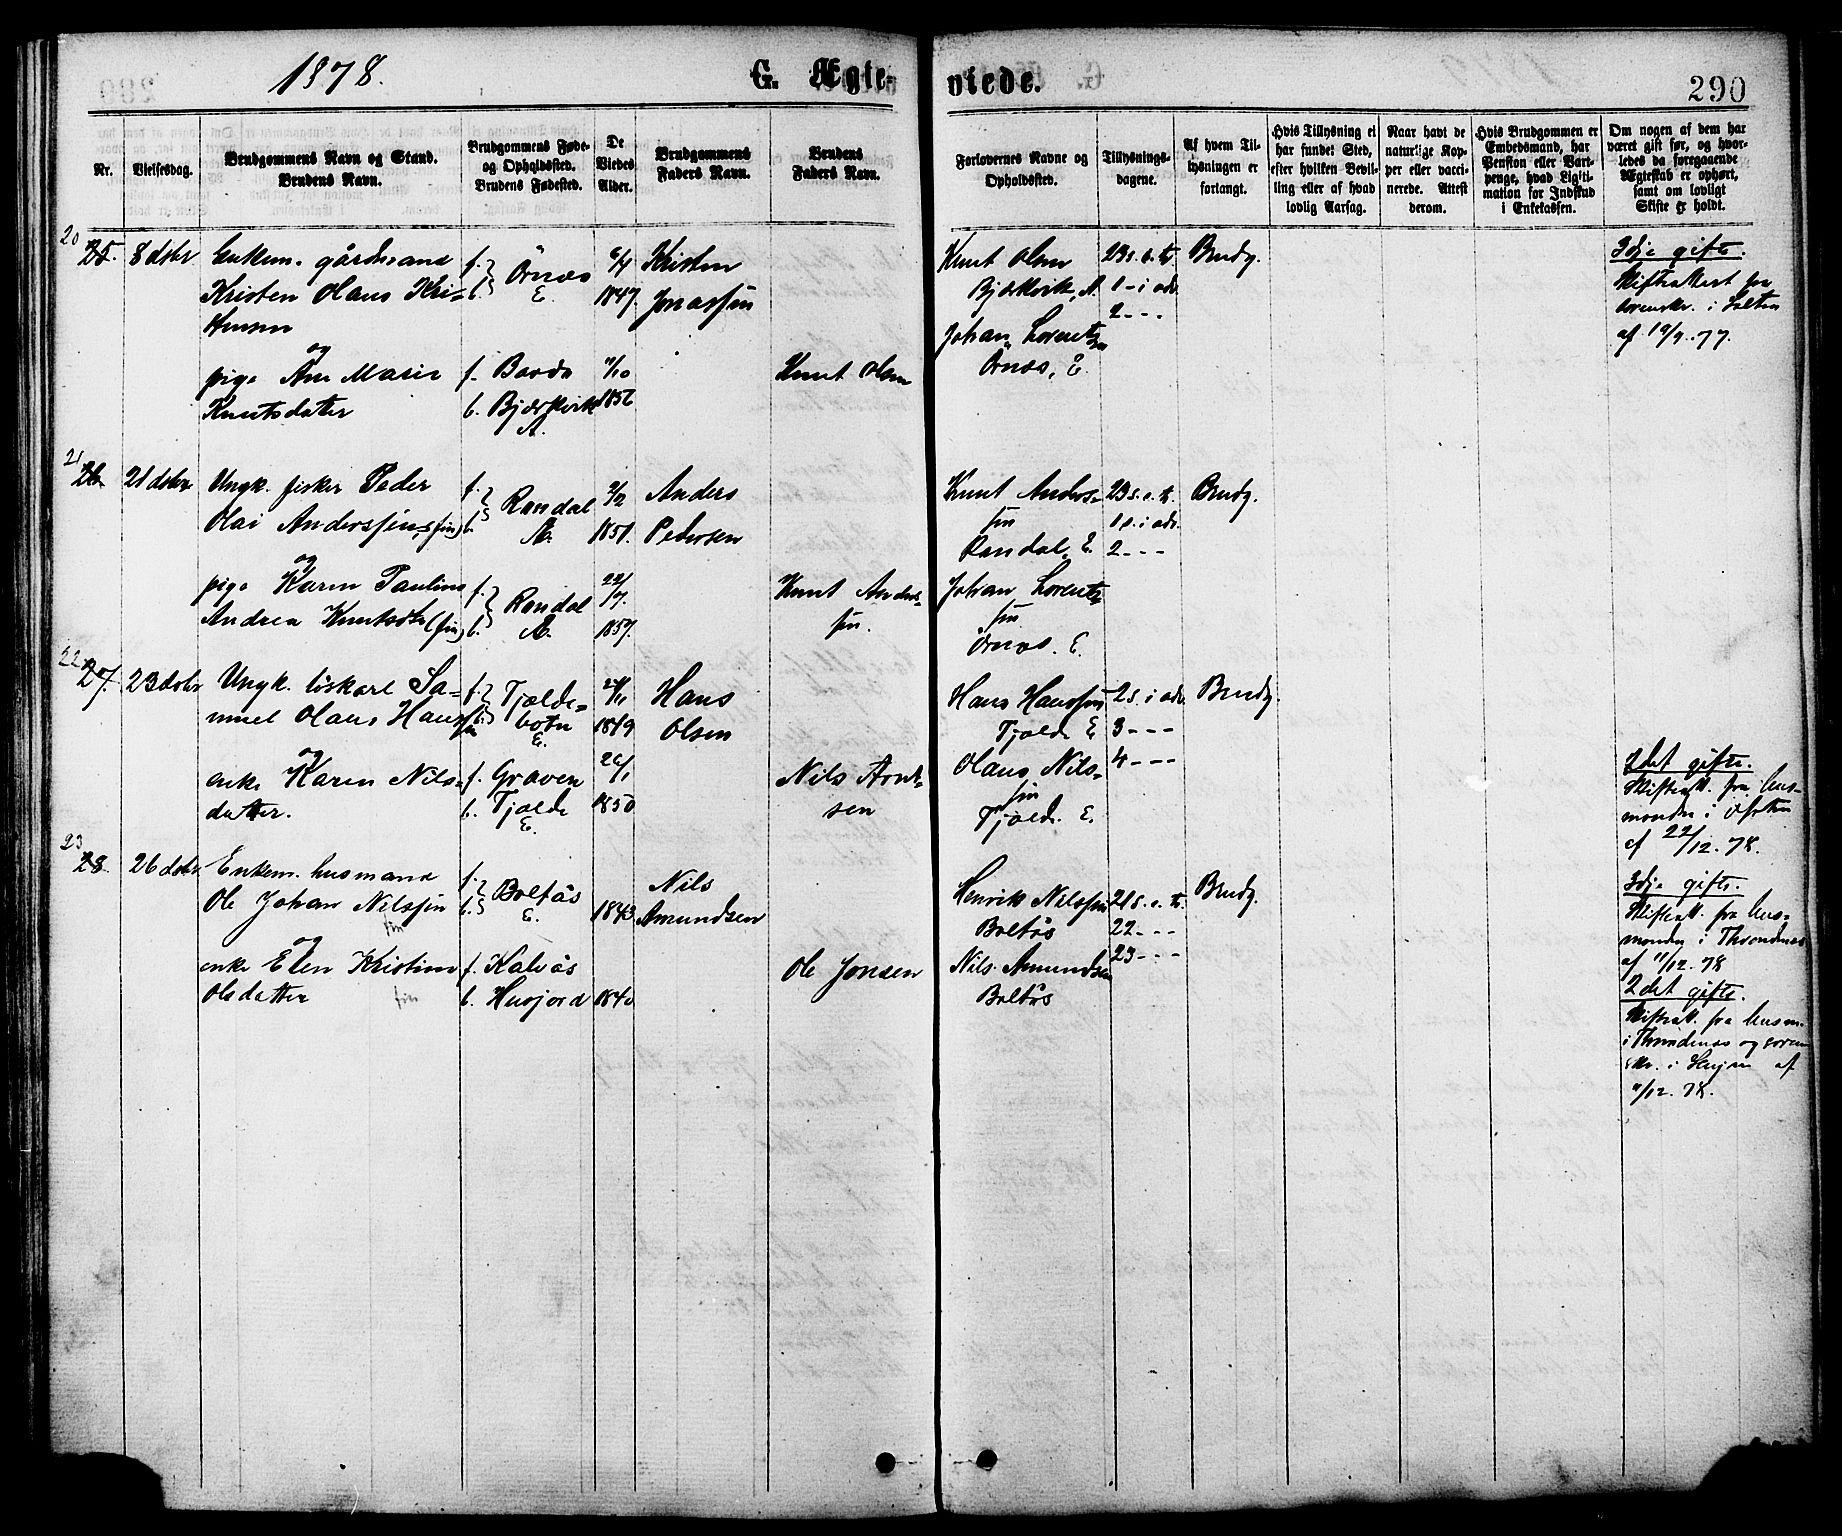 1878.
G. Ægte-
viede.
290
Nr.
Vielsesdag.
Brudgommens Navn og Stand.
Brudens Navn.
Brudgommens Føde-
og Opholdssted.
Brudens Fødested.
De
Viedes
Alder.
Brudgommens
Faders Navn.
Brudens
Faders Navn.
Forlovernes Navne og
Opholdssted.
Tillysnings-
dagene.
Af hvem Til-
lysningen er
forlangt.
Hvis Tillysning ei
har fundet Sted,
efter hvilken Bevil-
ling eller af hvad
lovlig Aarsag.
Naar havt de
naturlige Kop-
per eller vacci-
nerede. Attest
derom.
Hvis Brudgommen er
Embedsmand, har
Pension eller Vart-
penge, hvad Ligiti-
mation for Indskud
i Enkekassen.
Om nogen af dem har
været gift før, og hvor-
ledes da foregaaende
Ægteskab er ophørt,
samt om lovligt
Skifte er holdt.
20
25. 8 dsbr
Enkem. gårdmand
Kristen Olaus Kri-
stensen
og
pige Ane Marie
Knutsdatter
f. b. Örnæs
E.
f. Bardo
b. Bjærkvik
A.
6/4
1847.
1856
Kristen
Jonassen
Knut Olsen
Knut Olsen
Bjærkvik, A.
Johan Lorents
Örnæs, E.
23 s. e. tr.
1 - i adv.
2 - - -
Brudg.
3dje gifte.
Skifteattest fra
sorenskr. i Salten
af 19/9. 77.
21
26 21 dsbr
Ungk. fisker Peder
Olai Anderssen (fin)
og
pige Karen Pauline
Andrea Knutsdtr (fin)
f. b. Randal
E.
f. b. Randal
E.
2/2
1851.
22/7.
1857.
Anders
Pedersen
Knut Anders-
sen.
Knut Anders-
sen
Randal, E.
Johan Lorents
sen
Örnæs. E.
23 s. e. tr.
1 s. i adv.
2 - - -
Brudg.
22
27. 23 dsbr
Ungk. löskarl Sa-
muel Olaus Hanssen
og
enke Karen Nils-
datter.
f. b. Tjælde-
botn
E.
f. Graven
b. Tjælde
E.
1849
1850
Hans
Olsen
Nils Arnt-
sen
Hans Hanssen
Tjælde E.
Olaus Nils-
sen
Tjælde. E.
2 s. i adv.
3 - - -
4 - - -
Brudg.
2det gifte.
Skifteatt. fra lens-
manden i Ofoten
af 22/12. 78.
23
28. 26 dsbr.
Enkem. husmand
Ole Johan Nilssen
fin
og
enke Elen Kristine
Olsdatter fin
f. b. Boltås
E.
f. Kalvås
b. Husjord
1843
1840
Nils
Amundsen
Ole Jonsen
Henrik Nilssen
Boltås
Nils Amundsen
Boltås
21 s. e. tr.
22 - - -
23 - - -
Brudg.
3dje gifte.
Skifteatt. fra lens-
manden i Throndenæs
af 11/12. 78
2det gifte.
Skifteatt. fra lensm.
i Throndenæs og soren
skr. i Senjen af
11/12. 78.